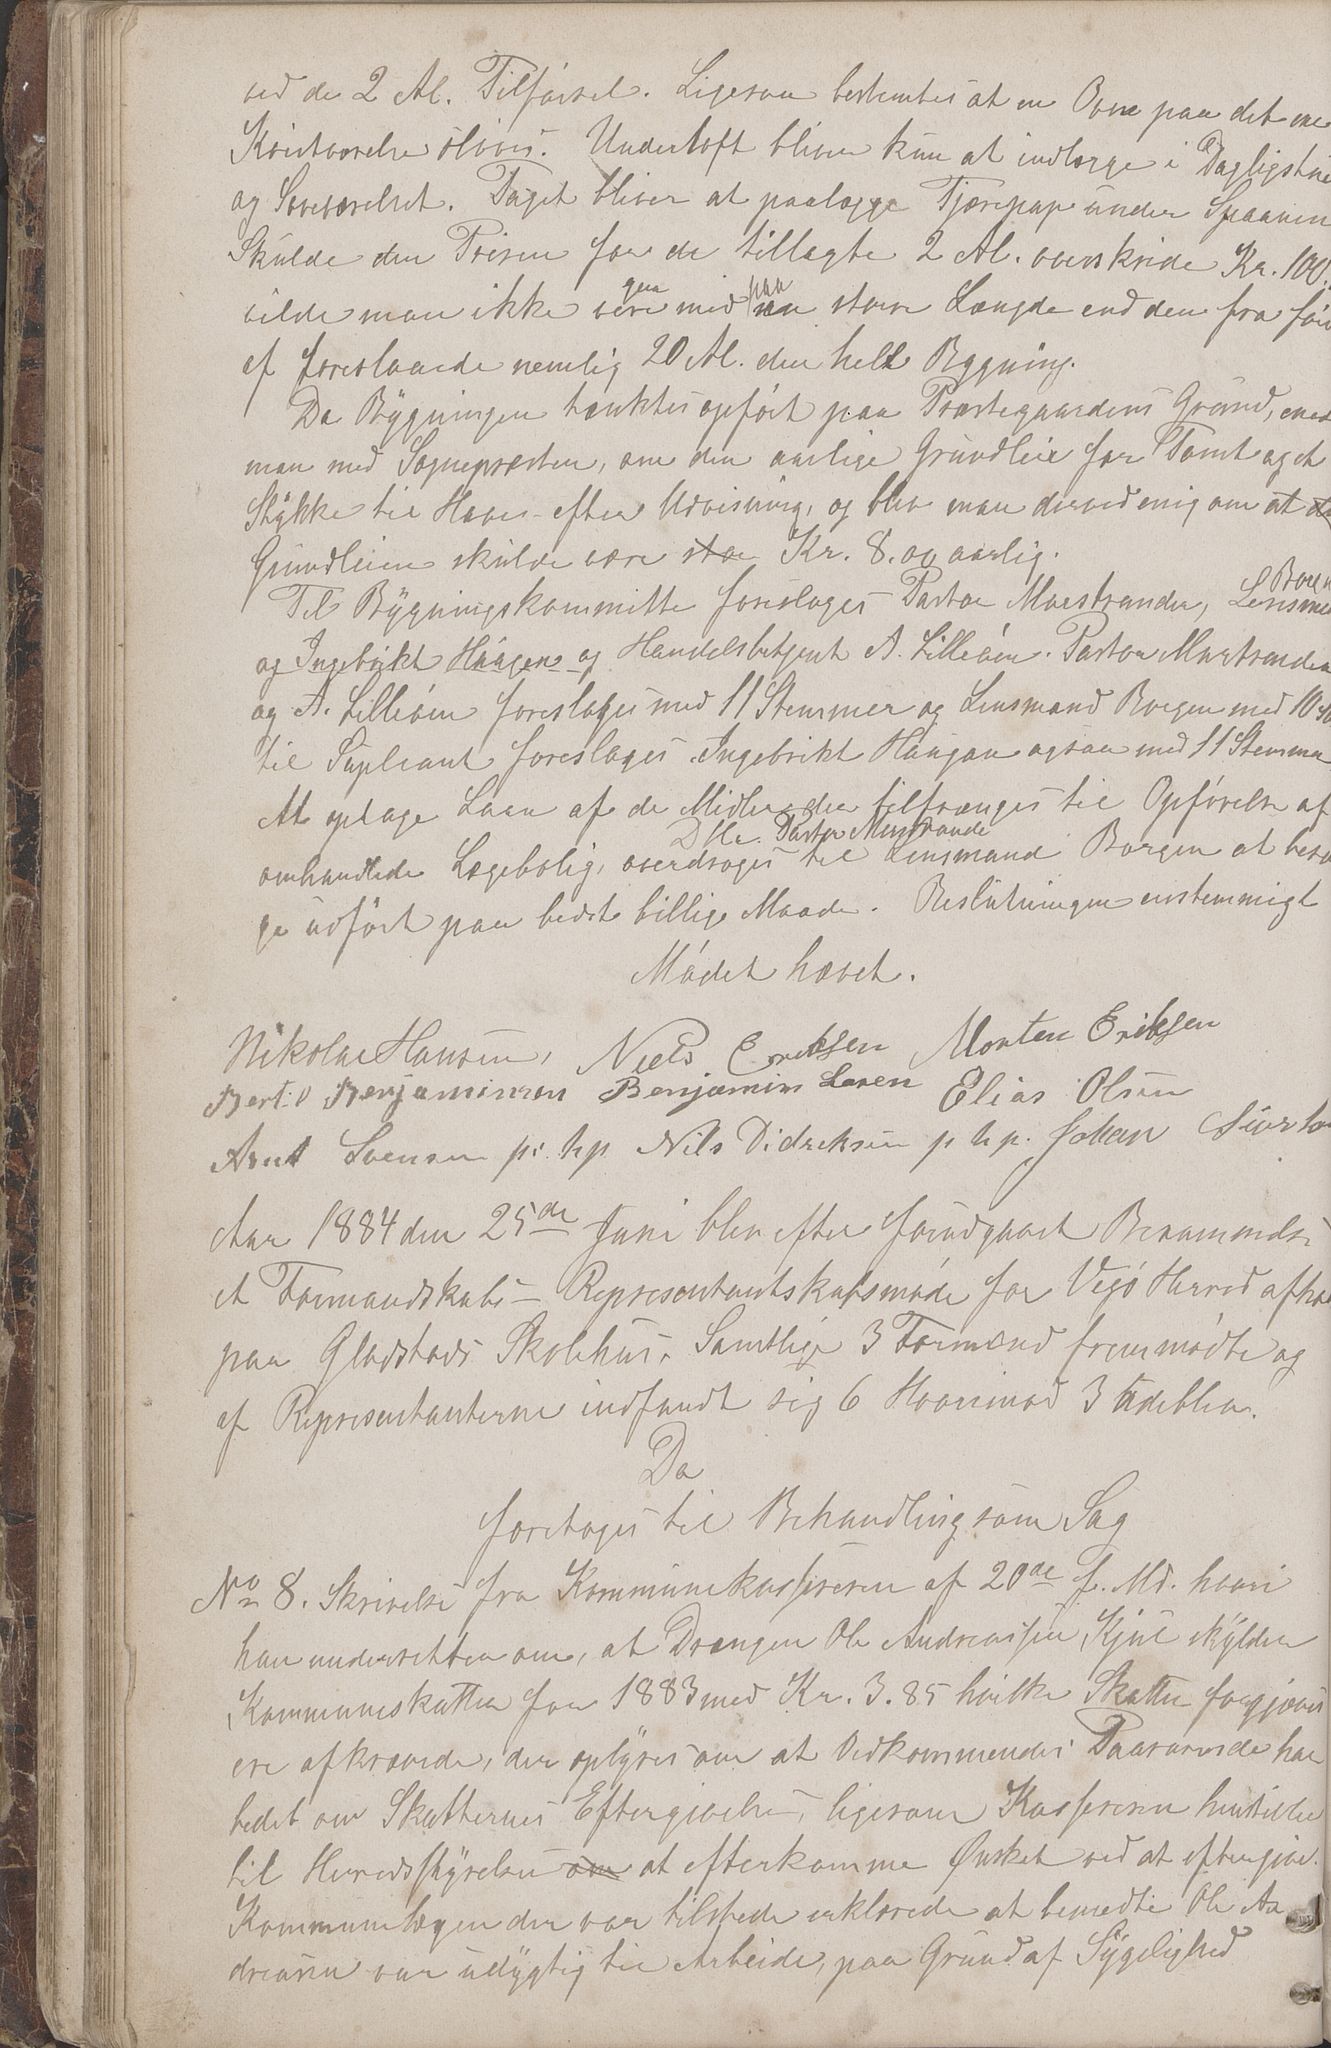 ved de 2 Al. Tilførsel. Ligesaa bestemtes at en Ovn paa det ene
Kvistværelse sløives. Underloft bliver kun at indlægge i Dagligstue
og Soveværelset. Taget bliver at paalægge Tjærepap under Spaanen
Skulde den Prisen for de tillagte 2 Al. overskride Kr. 100.
vilde man ikke gaa med paa større Længde end den fra før
af foreslaaede nemlig 20 Al. den hele Bygning.
Da Bygningen tænktes opført paa Præstegaardens Grund, enedes
man med Sognepræsten, om den aarlige Grundleie for Tomt og et
Stykke til Have efter Udvisning, og blev man derved enig om at
Grundleien skulde være Kr. 8.00 aarlig.
Til Bygningskommitte foresloges Pastor Mæstrander, Lensmand Borgen
og Ingebrikt Haugen og Handelsbetjent A. Lilleøien. Pastor Mæstrander
og A. Lilleøien foresloges med 11 Stemmer og Lensmand Borgen med 10
til Supleant foresloges Ingebrikt Haugan ogsaa med 11 Stemmer
At optage Laan af de Midler der tiltrænges til Opførelse af
D Hr. Pastor Mæstrande
omhandlede Lægebolig, overdroges til Lensmand Borgen at besø
ge udført paa bedst billige Maade. Beslutningen enstemmigt
Mødet hævet.
Nikolai Hansen, Niels Eriksen Morten Eriksen
Bertil Benjaminsen Benjamin Larsen Elias Olsen
Arnt Svensen p. h p Nils Didreksen p h p. Johan
Aar 1884 den 25de Juni blev efter forudgaaet Berammelse
et Formandskabs- Representantskabsmøde for Vegø Herred afhol
paa Gladstads Skolehus. Samtlige 3 Formænd fremmødte og
af Representanterne indfandt sig 6 Hvorimod 3 udeblev.
Da
foretoges til Behandling som Sag
No 8. Skrivelse fra Kommunekassereren af 20de f. Md. hvori
han underretter om, at Drængen Ole Andreassen Kjul skylder
Kommuneskatter for 1883 med Kr. 3.85 hvilke Skatter forgjæves
ere afkrævede, der oplyses om at Vedkommendes Paarørende har
bedet om Skatternes Eftergivelse, ligesom Kassereren henstiller
til Herredsstyrelsen om at efterkomme Ønsket ved at eftergive.
Kommunelægen der var tilstede erklærede at bemedte Ole An
dreasen var udygtig til Arbeide, paa Grund af Sygelighed